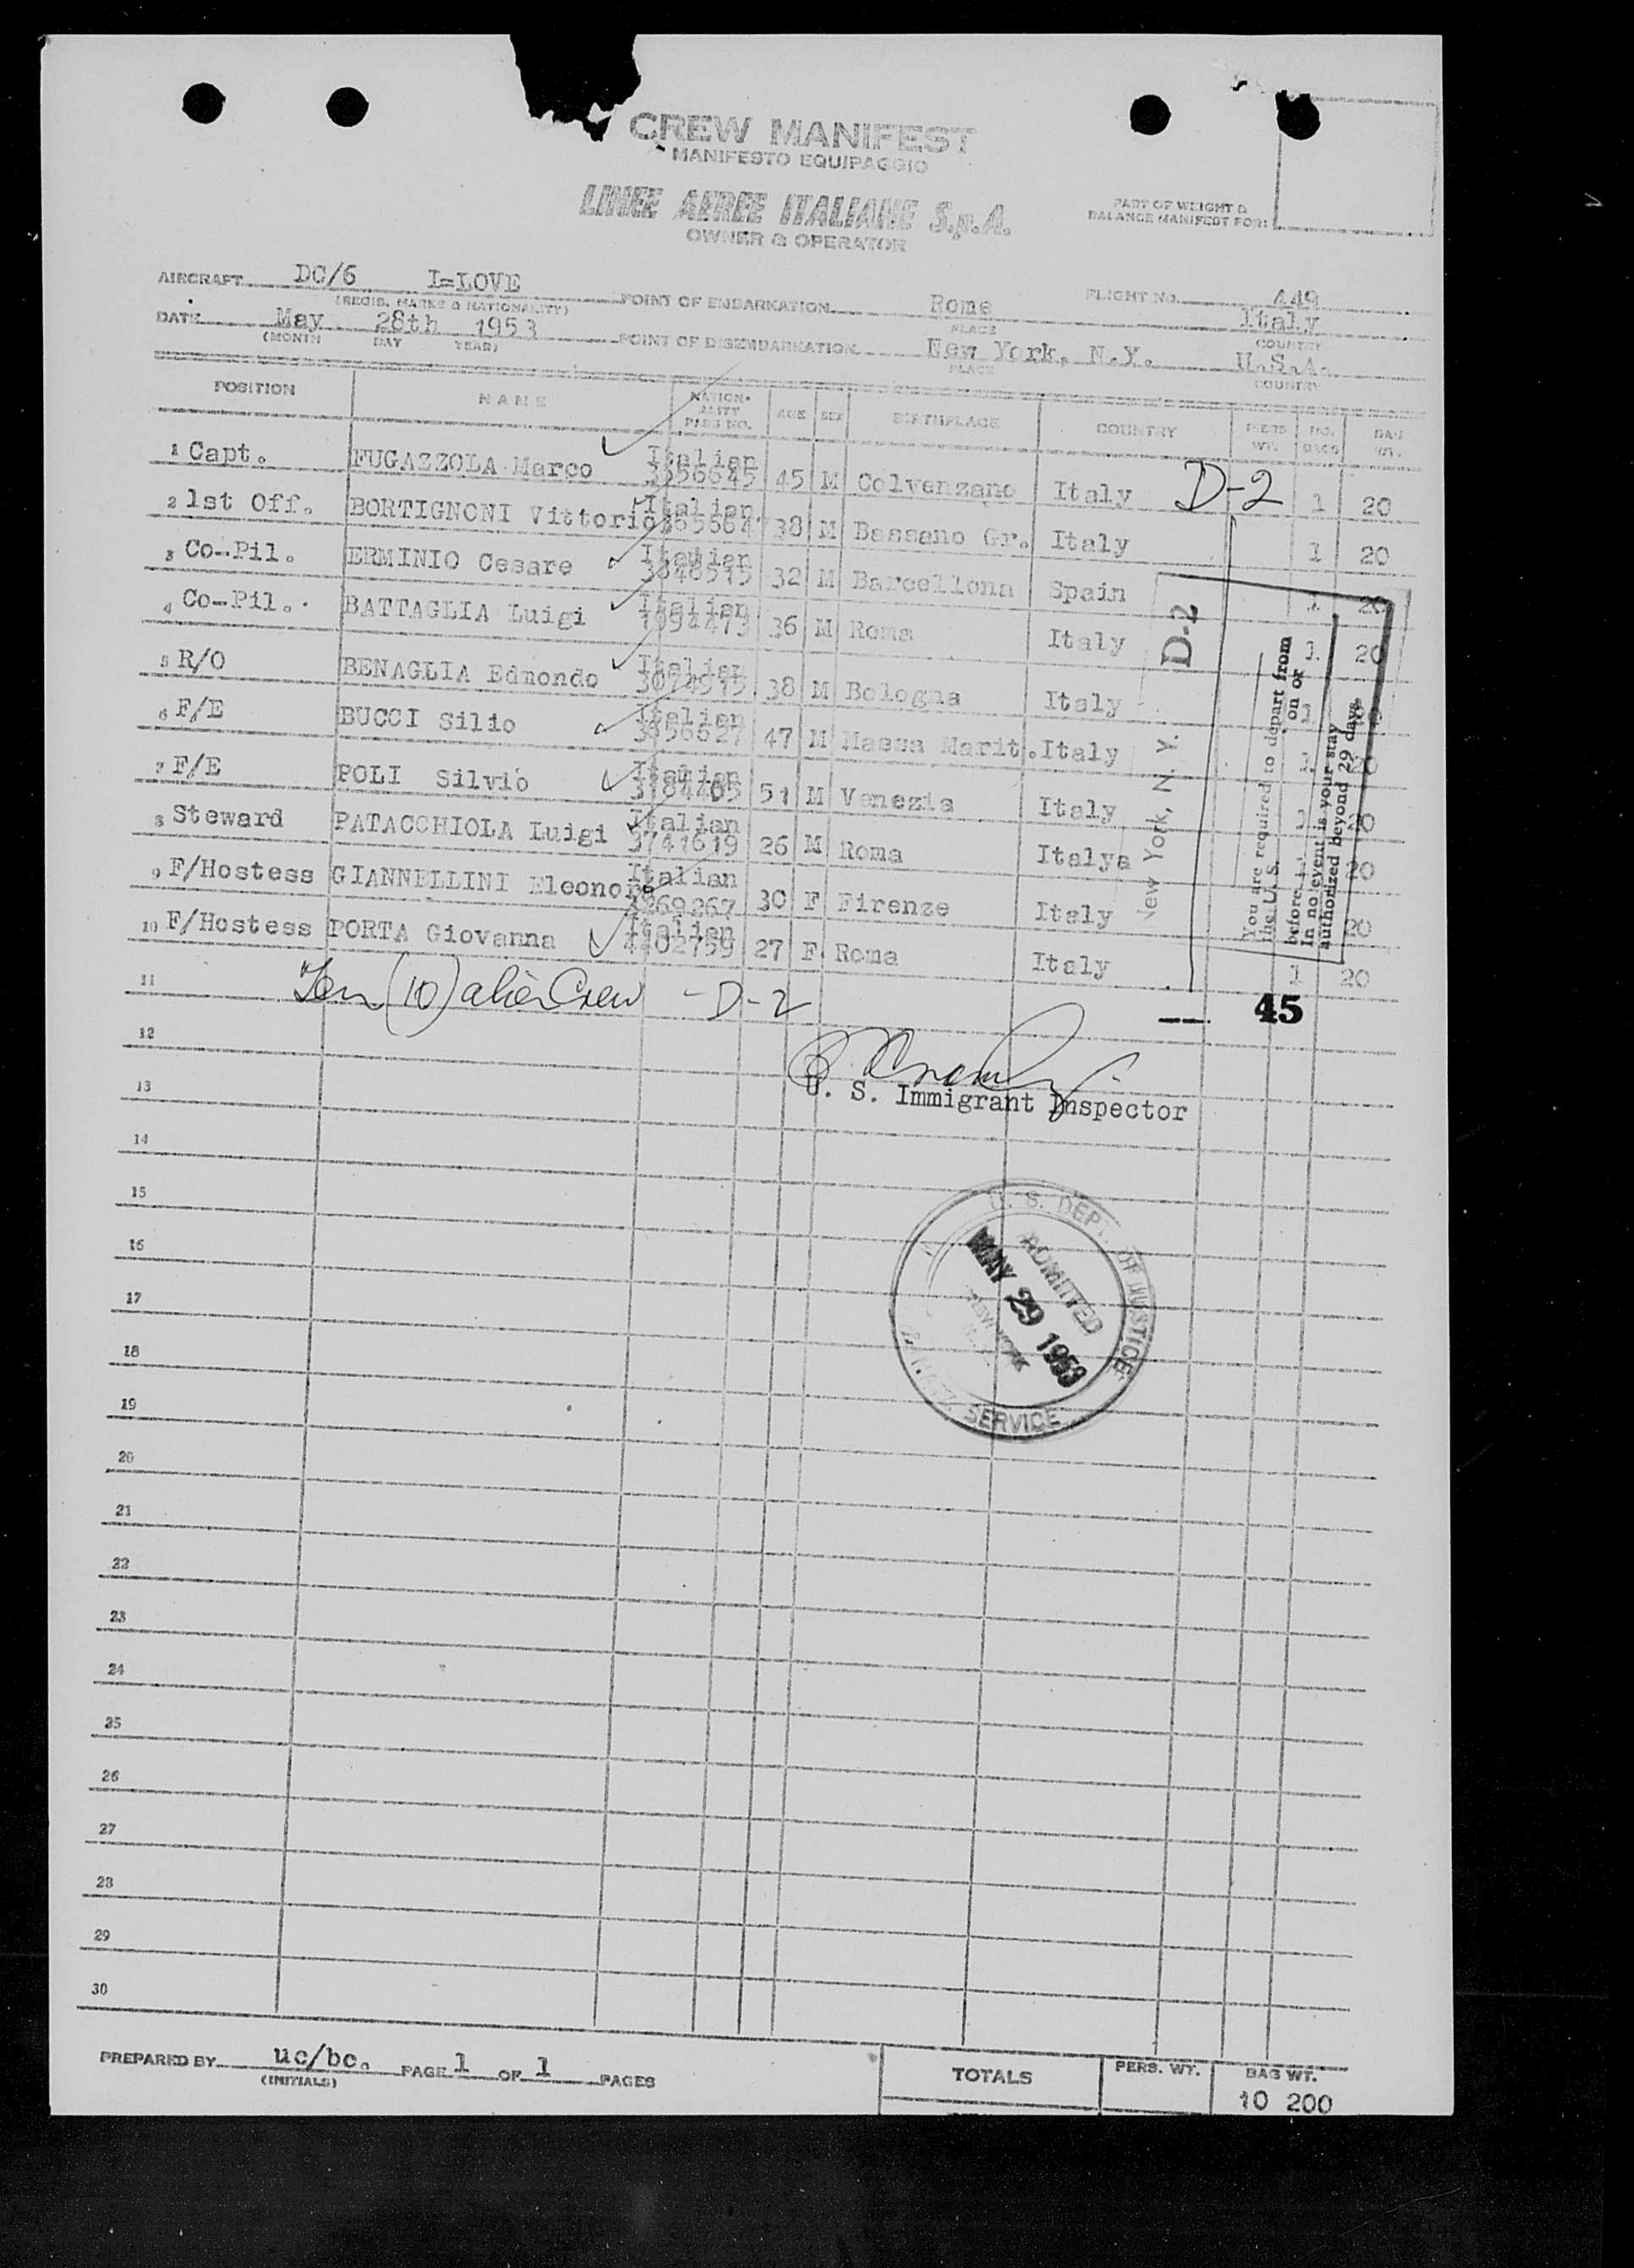 CREW MANIFEST
MANIFESTO EQUIPAGGIO
LINEE AEREE ITALIANE S.p.A.
OWNER & OPERATOR
PART OF WEIGHT &
BALANCE MANIFEST FOR:
AIRCRAFT DC/6 I=LOVE POINT OF EMBARKATION Rome FLIGHT No. 449
(REGIS. MARKS & NATIONALITY) PLACE Italy
DATE May 28th 1953 POINT OF DISEMBARKATION New York, N.Y. COUNTRY U.S.A.
(MONTH DAY YEAR) PLACE COUNTRY
POSITION NAME NATION-ALITY PASS NO. AGE SEX BIRTHPLACE COUNTRY PERS WT. NO. BAGS BAG WT.
1 Capt. FUGAZZOLA Marco Italian 45 M Colvenzano Italy D-2 1 20
2 1st Off. BORTIGNONI Vittorio Italian 38 M Bassano Gr. Italy 1 20
3 Co-Pil. ERMINIO Cesare Italian 32 M Barcellona Spain 1 20
4 Co-Pil. BATTAGLIA Luigi Italian 36 M Roma Italy 1 20
5 R/O BENAGLIA Edmondo Italian 38 M Bologna Italy 1 20
6 F/E BUCCI Silio Italian 3856627 47 M Massa Marit. Italy 1 20
7 F/E POLI Silvio Italian 51 M Venezia Italy 1 20
8 Steward PATACCHIOLA Luigi Italian 3741619 26 M Roma Italya 1 20
9 F/Hostess GIANNELLINI Eleonora Italian 4269267 30 F Firenze Italy 20
10 F/Hostess PORTA Giovanna Italian 4402759 27 F Roma Italy 1 20
New York, N. Y. D-2
You are required to depart from
the U. S. on or
before
In no event is your stay
authorized beyond 29 days
11 Ten (10) alien Crew - D-2
45
12
U. S. Immigrant Inspector
13
14
15
U. S. DEPT. OF JUSTICE
ADMITTED
MAY 29 1953
NEW YORK
& NATZ. SERVICE
16
17
18
19
20
21
22
23
24
25
26
27
28
29
30
PREPARED BY uc/bc. PAGE 1 OF 1 PAGES
(INITIALS)
TOTALS PERS. WT. BAG WT.
10 200